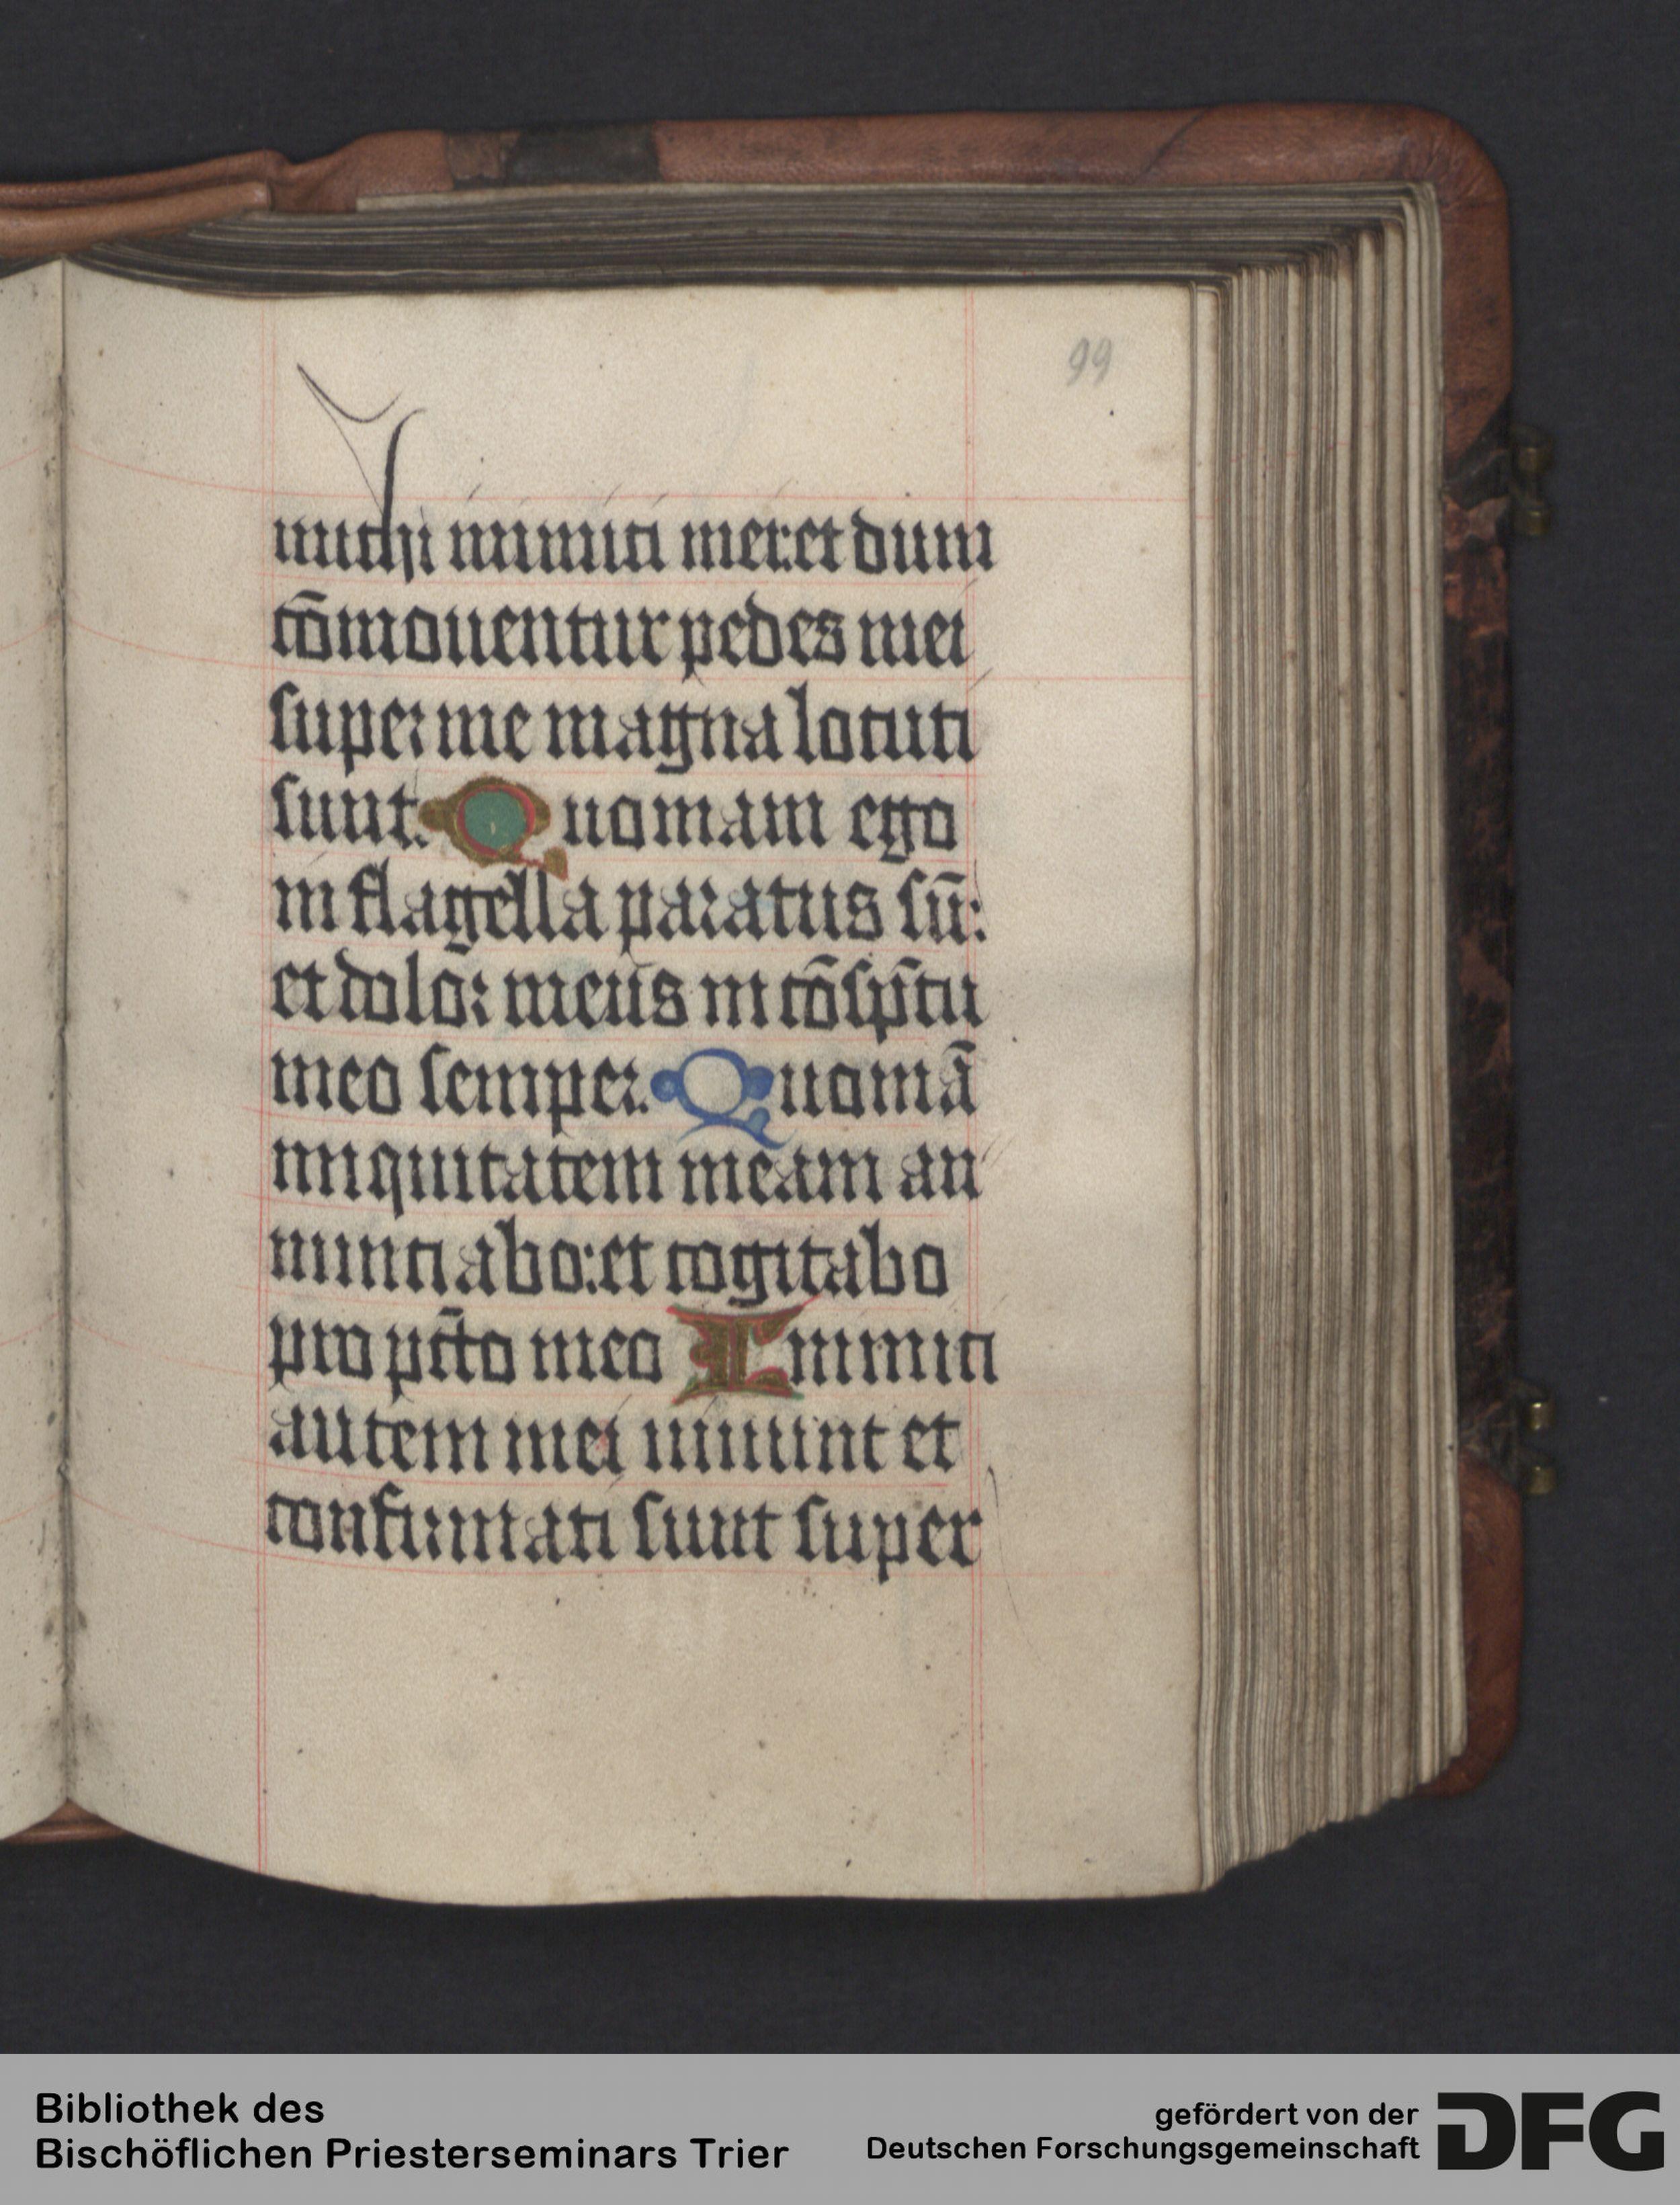 99
michi inimici mei: et dum
cōmouentur pedes mei
super me magna locuti
sunt. Quoniam ego
in flagella paratus sū:
et dolor meus in cōsp̄tu
meo semper. Quoniā
iniquitatem meam an
nunciabo: et cogitabo
pro pctō meo Inimici
autem mei uiuunt et
confirmati sunt super
Bibliothek des
Bischöflichen Priesterseminars Trier
gefördert von der
Deutschen Forschungsgemeinschaft
DFG